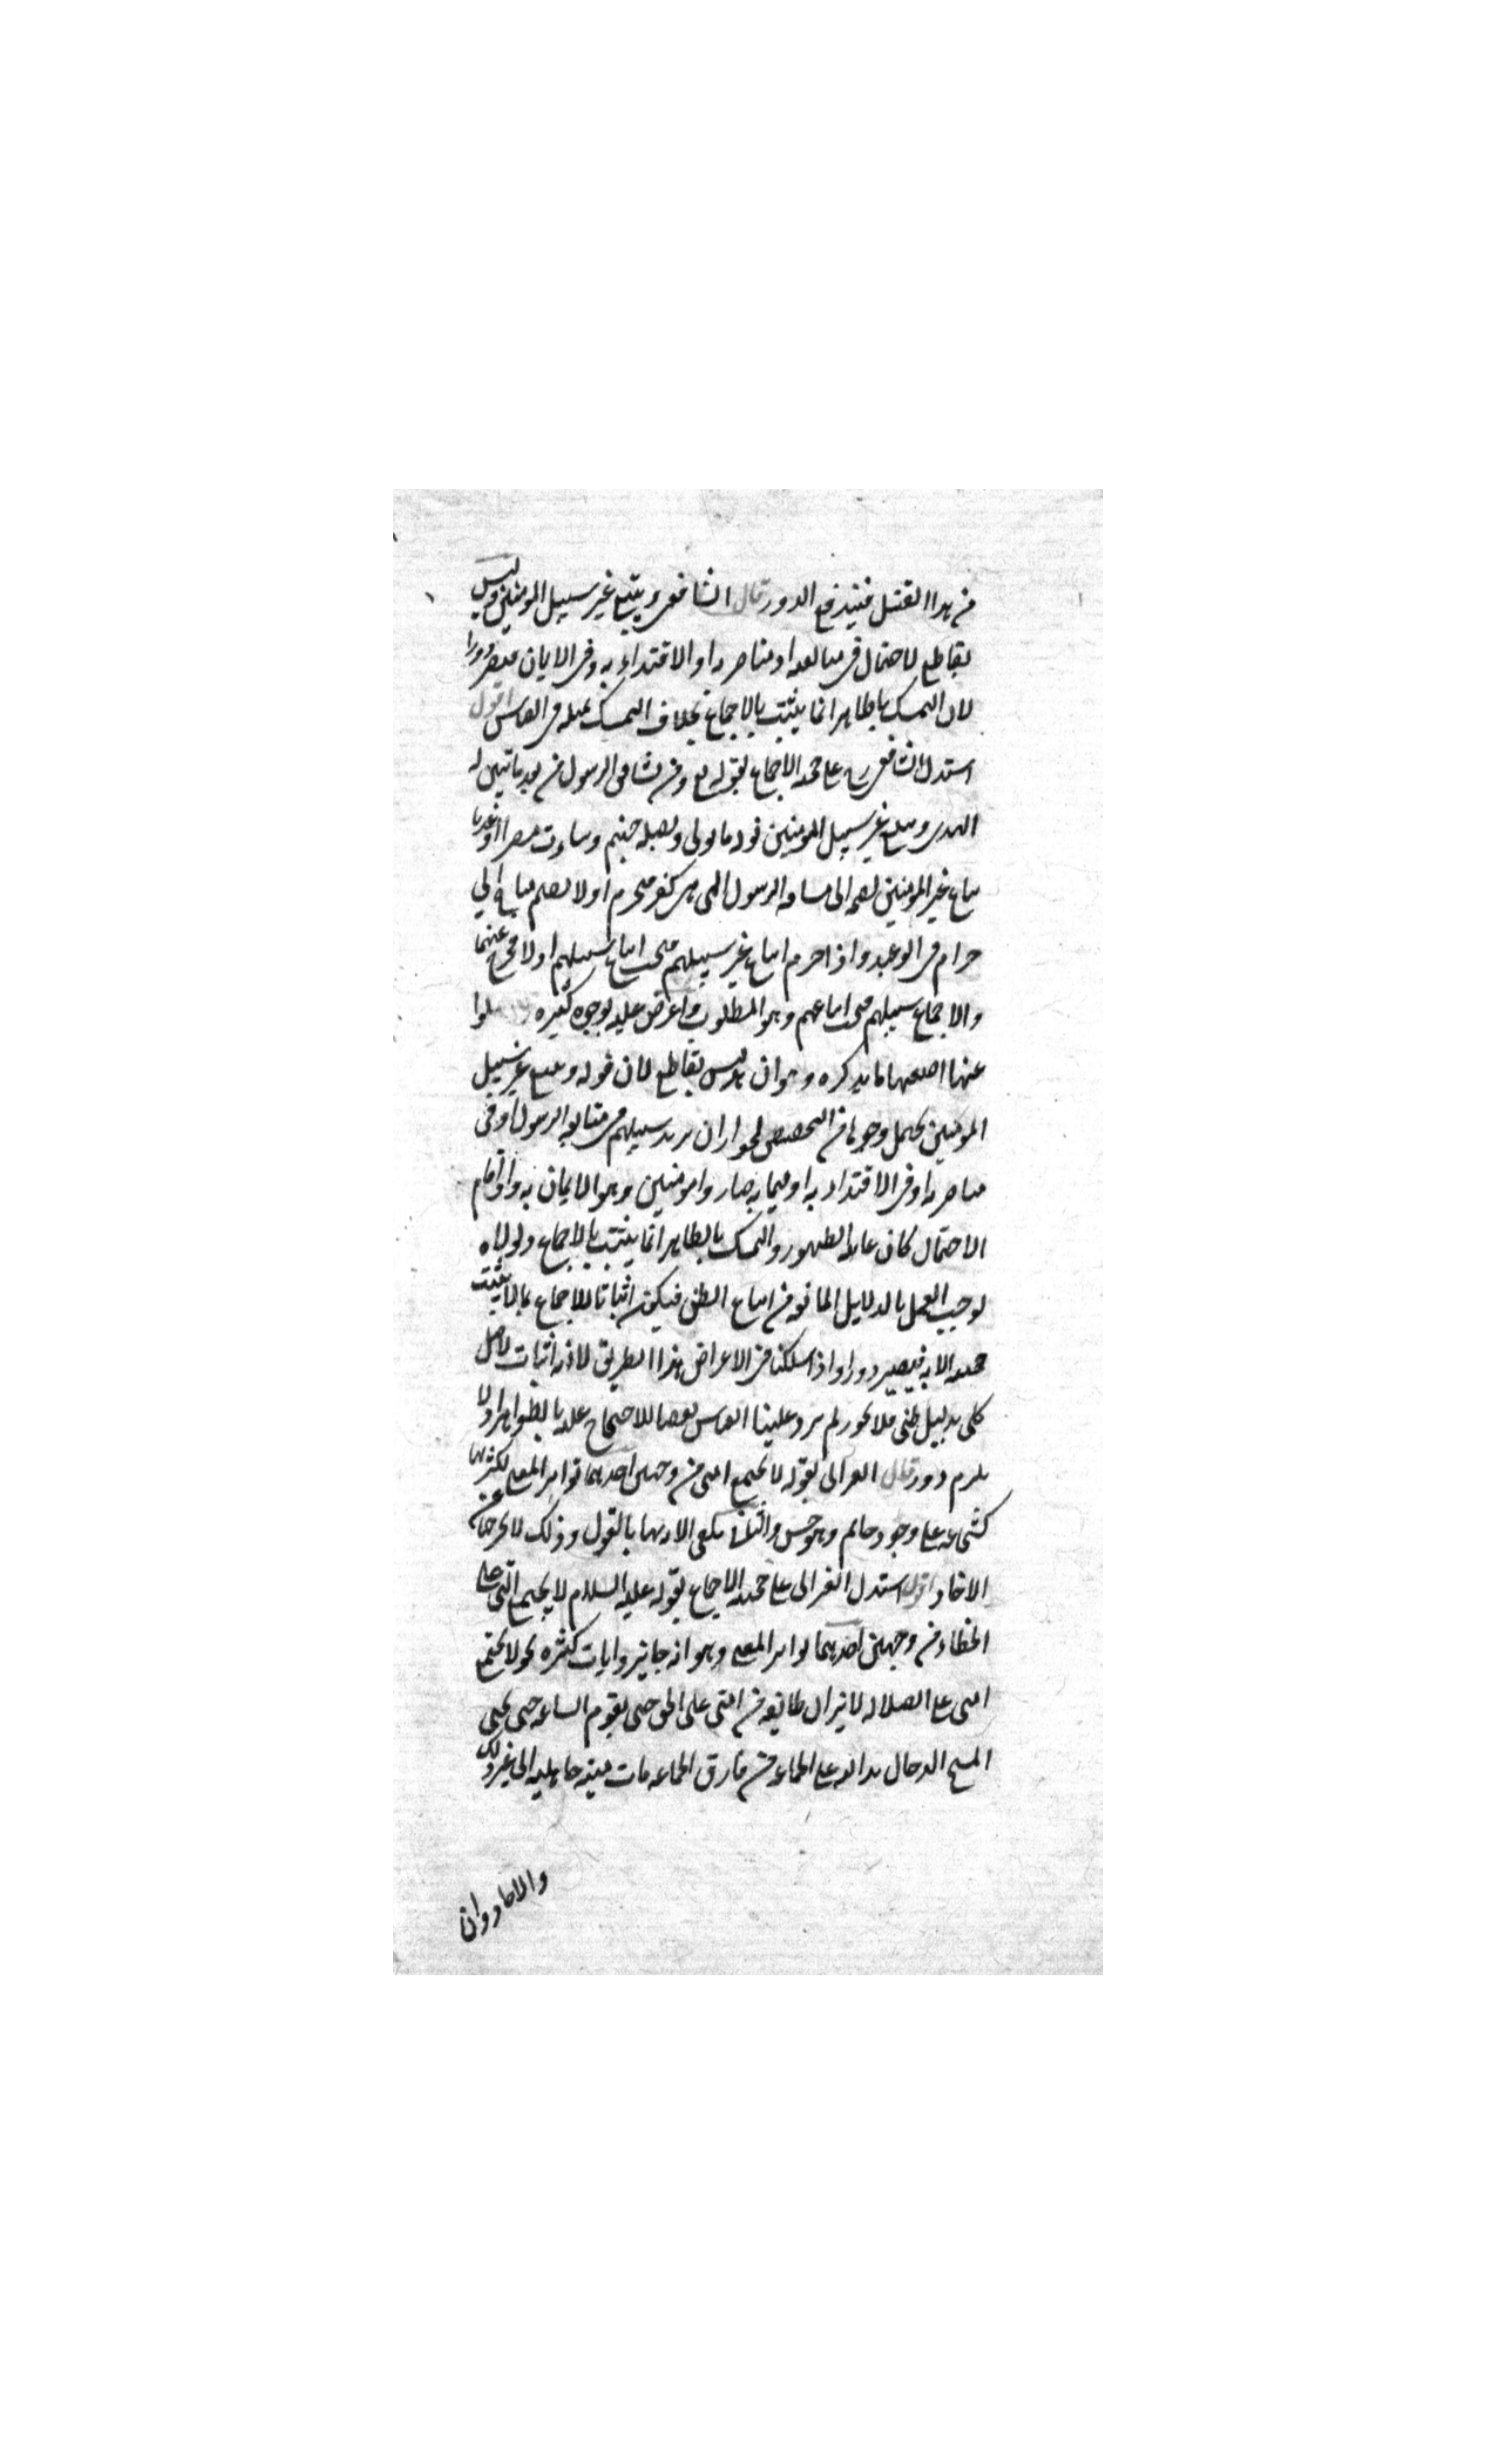 من هذا القبيل فيندفع الدور قال الشافعي ويتبع غير سبيل المومنين وليس
بقاطع لاحتمال في متابعته او مناصرته او الاقتداء به وفي الايمان فيصير دورا
لان التمسك بالظاهر انما يثبت بالاجماع بخلاف التمسك بمثله في القياس اقول
استدل الشافعي رح على حجية الاجماع بقوله تع ومن يشاقق الرسول من بعد ما تبين له
الهدى ويتبع غير سبيل المومنين نوله ما تولى ونصله جهنم وساءت مصيرا اوعد با
تباع غير المومنين بضمه الى مشاقة الرسول التي هي كفر فيحرم اذ لا يضم مباح الى
حرام في الوعيد واذا حرم اتباع غير سبيلهم فيجب اتباع سبيلهم اذ لا مخرج عنهما
والاجماع سبيلهم فيجب اتباعهم وهو المطلوب واعترض عليه بوجوه كثيره
عنها اصعبها ما يذكره وهو ان هذا ليس بقاطع لان قوله ويتبع غير سبيل
المومنين يحتمل وجوها من التخصيص لجواز ان يريد سبيلهم في متابعة الرسول او في
مناصرته او في الاقتداء به او فيما به صاروا مومنين وهو الايمان به واذا قام
الاحتمال كان غايته الظهور والتمسك بالظاهر انما يثبت بالاجماع ولولاه
لوجب العمل بالدلايل المانعه من اتباع الظن فيكون اثباتا للاجماع بما لا يثبت
حجيته الا به فيصير دورا واذا سلكنا في الاعتراض هذا الطريق لا انه اثبات لاصل
كلى بدليل ظني فلا يجوز لم يرد علينا القياس نقضا للاحتجاج عليه بالظواهر اذ لا
يلزم دور قال الغزالي بقوله لا تجتمع امتي من وجهين احدهما تواتر المعنى لكثرتها
كشجاعة على وجود حاتم وهو حسن والثاني تلقي الامة لها بالقول وذلك لا يخرجها عن
الاحاد اقول استدل الغزالي على حجية الاجماع بقوله عليه السلام لا تجتمع امتي على
الخطاء من وجهين احدهما تواتر المعنى وهو انه جا بروايات كثيره نحو لا يجتمع
امتي على الضلاله لا يزال طائفه من امتي على الحق حتى يقوم الساعه حتى يجيى
المسيح الدجال يد الله على الجماعه من فارق الجماعه مات ميته جاهليه الى غير ذلك
والاحاد وان